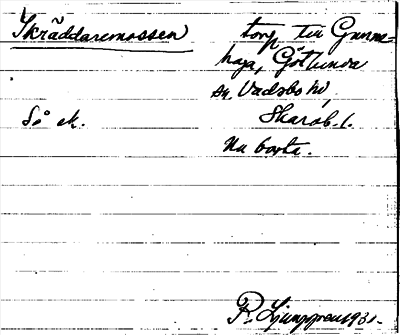 Skräddaremossen
torp till Gunne-
haja, Götlunda
sn, Vadsbo hd,
Skarab. l.
Så ek.
Nu borta.
R. Ljunggren 1931.